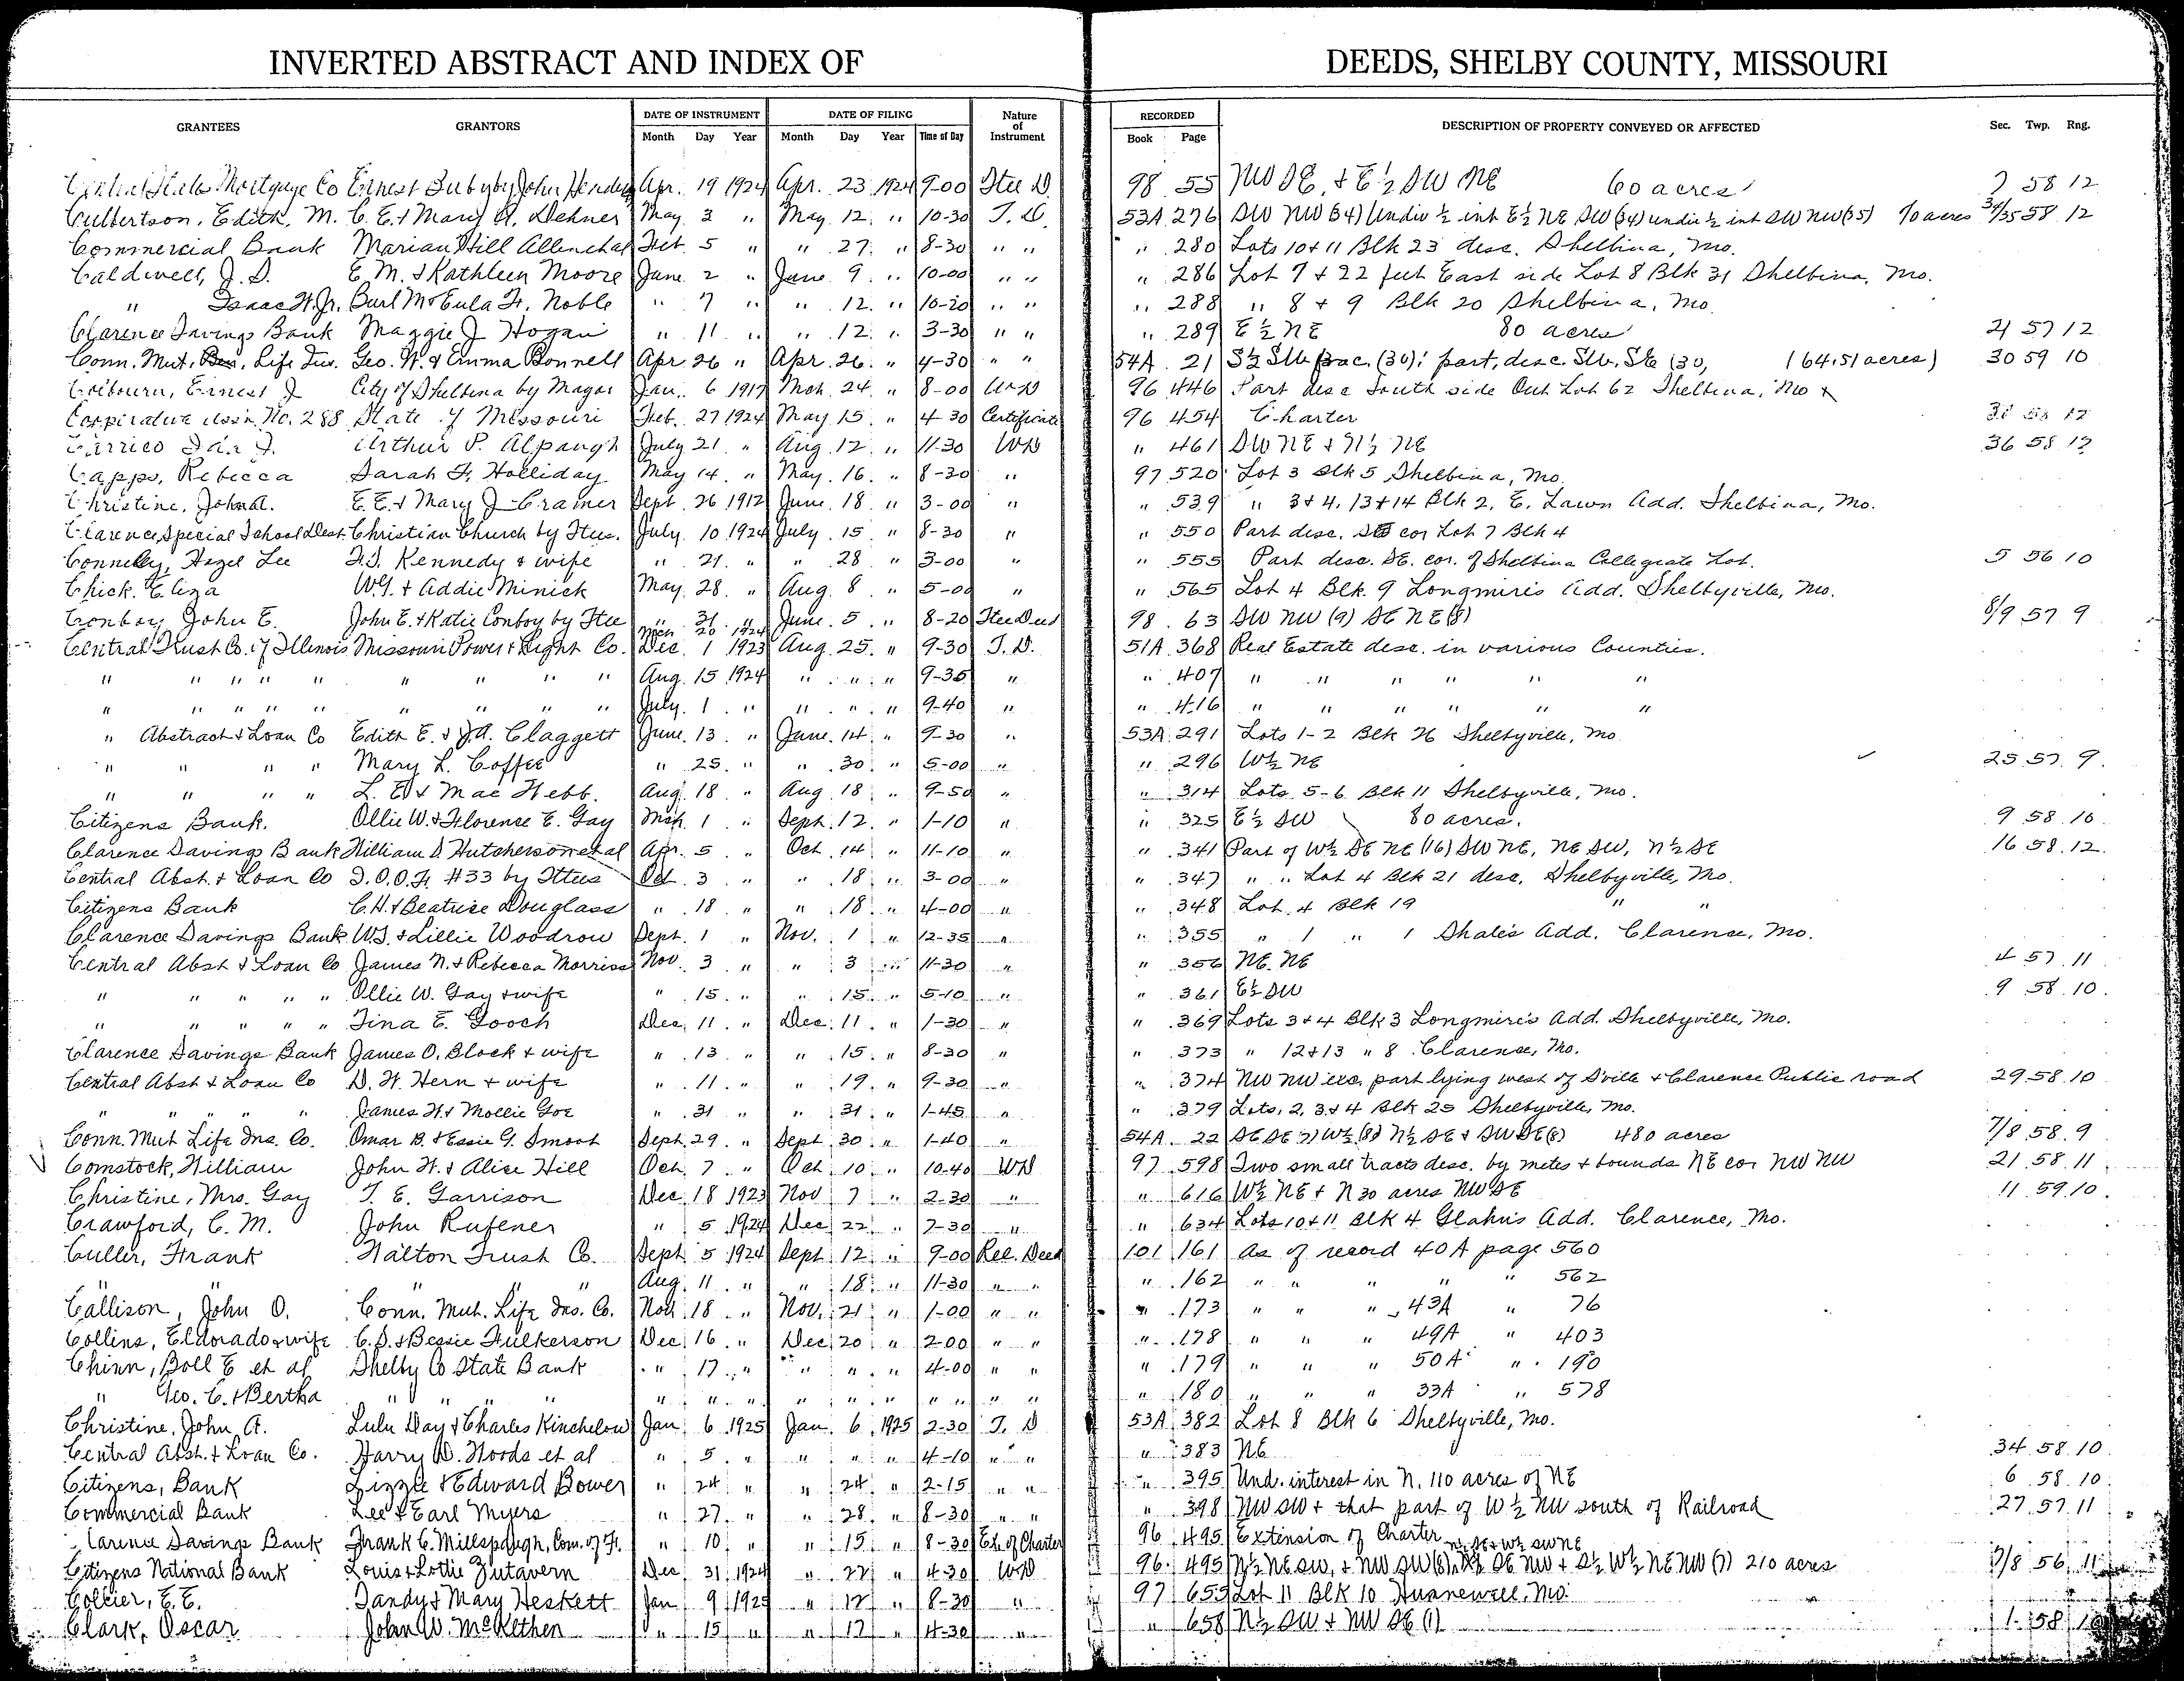 INVERTED ABSTRACT AND INDEX OF DEEDS, SHELBY COUNTY, MISSOURI
GRANTEES GRANTORS DATE OF INSTRUMENT DATE OF FILING Nature of Instrument RECORDED DESCRIPTION OF PROPERTY CONVEYED OR AFFECTED Sec. Twp. Rng.
Month Day Year Month Day Year Time of Day Book Page
Central States Mortgage Co Ernest by John Apr. 19 1924 Apr. 23 1924 9-00 Stee D. 98 55 NW SE, & E½ SW NE 60 acres 7 58 12
Culbertson, Edith, M. C. E. & Mary A. Dehner May 3 " May 12 " 10-30 T. D. 53A 276 SW NW (34) Undiv ½ int E½ NE SW (34) undiv ½ int SW NW (35) 70 acres 34/35 58 12
Commercial Bank Marian Hill Allen et al Feb. 5 " " 27 " 8-30 " " " 280 Lots 10 & 11 Blk 23 desc. Shelbina, Mo.
Caldwell, J. D. E. M. & Kathleen Moore June 2 " June 9 " 10-00 " " " 286 Lot 7 & 22 feet East side Lot 8 Blk 31 Shelbina, Mo.
" Isaac W. Jr. Burl M & Eula F. Noble " 7 " " 12 " 10-20 " " " 288 " 8 & 9 Blk 20 Shelbina, Mo.
Clarence Savings Bank Maggie J. Hogan " 11 " " 12 " 3-30 " " " 289 E½ NE 80 acres 21 57 12
Conn. Mut. Life Ins. Geo. W. & Emma Bonnell Apr. 26 " Apr. 26 " 4-30 " " 54A 21 S½ SW frac. (30); part, desc. SW. SE (30, (64.51 acres) 30 59 10
Coibourn, Ernest J City of Shelbina by Mayor Jan. 6 1917 Mch. 24 " 8-00 WD 96 446 Part desc South side Out Lot 62 Shelbina, Mo
Corpirative Assn. No. 288 State of Missouri Feb. 27 1924 May 15 " 4 30 Certificate 96 454 Charter
Carrico Arthur P. Alpaugh July 21 " Aug. 12 " 11-30 WD " 461 SW NE & N½ NE 36 58 12
Capps, Rebecca Sarah F. Holliday May 14 " May 16 " 8-30 " 97 520 Lot 3 Blk 5 Shelbina, Mo.
Christine, John A. E. E. & Mary J. Cramer Sept. 26 1912 June 18 " 3-00 " " 539 " 3 & 4, 13 & 14 Blk 2, E. Lawn Add. Shelbina, Mo.
Clarence Special School Dist. Christian Church by Stees. July 10 1924 July 15 " 8-30 " " 550 Part desc. cor Lot 7 Blk 4
Connelly, Hazel Lee F. S. Kennedy & wife " 21 " " 28 " 3-00 " " 555 Part desc. SE. cor. of Shelbina Collegiate Lot. 5 56 10
Chick, Eliza W. G. & Addie Minick May 28 " Aug. 8 " 5-00 " " 565 Lot 4 Blk. 9 Longmire's Add. Shelbyville, Mo.
Conboy John E. John E. & Katie Conboy by Stee " 31 " June 5 " 8-20 Stee Deed 98 63 SW NW (9) SE NE (8) 8/9 57 9
Mch 20 1924
Central Trust Co. of Illinois Missouri Power & Light Co. Dec. 1 1923 Aug. 25 " 9-30 T. D. 51A 368 Real Estate desc. in various Counties.
" " " " " " " " " Aug. 15 1924 " " " 9-35 " " 407 " " " " " "
" " " " " " " " " July 1 " " " " 9-40 " " 416 " " " " " "
" Abstract & Loan Co Edith E. & J. A. Claggett June 13 " June 14 " 9-30 " 53A 291 Lots 1-2 Blk 26 Shelbyville, Mo
" " " " Mary L. Coffee " 25 " " 30 " 5-00 " " 296 W½ NE 25 57 9
" " " " L. E. & Mae Webb. Aug. 18 " Aug. 18 " 9-50 " " 314 Lots 5-6 Blk 11 Shelbyville, Mo.
Citizens Bank. Ollie W. & Florence E. Gay Mch. 1 " Sept. 12 " 1-10 " " 325 E½ SW 80 acres. 9 58 10
Clarence Savings Bank William S. Hutcherson et al Apr. 5 " Oct 14 " 11-10 " " 341 Part of W½ SE NE (16) SW NE, NE SW, N½ SE 16 58 12
Central Abst. & Loan Co I. O. O. F. #33 by Sttees Oct. 3 " " 18 " 3-00 " " 347 " " Lot 4 Blk 21 desc. Shelbyville, Mo.
Citizens Bank C. H. & Beatrice Douglass " 18 " " 18 " 4-00 " " 348 Lot 4 Blk 19 " "
Clarence Savings Bank W. J. & Lillie Woodrow Sept. 1 " Nov. 1 " 12-35 " " 355 " 1 " 1 Shale's Add. Clarence, Mo.
Central Abst & Loan Co James N. & Rebecca Morriss Nov. 3 " " 3 " 11-30 " " 356 NE. NE 4 57 11
" " " " " Ollie W. Gay & wife " 15 " " 15 " 5-10 " " 361 E½ SW 9 58 10
" " " " " Tina E. Gooch Dec. 11 " Dec. 11 " 1-30 " " 369 Lots 3 & 4 Blk 3 Longmire's Add. Shelbyville, Mo.
Clarence Savings Bank James O. Block & wife " 13 " " 15 " 8-30 " " 373 " 12 & 13 " 8 Clarence, Mo.
Central Abst & Loan Co D. W. Hern & wife " 11 " " 19 " 9-30 " " 374 NW NW exc. part lying west of S'ville & Clarence Public road 29 58 10
" " " " James H. & Mollie Goe " 31 " " 31 " 1-45 " " 379 Lots, 2, 3 & 4 Blk 25 Shelbyville, Mo.
Conn. Mut Life Ins. Co. Omar B. & Essie G. Smoot Sept. 29 " Sept. 30 " 1-40 " 54A 22 SE SE 7) W½ (8) N½ SE & SW SE (8) 480 acres 7/8 58 9
Comstock, William John W. & Alice Hill Oct. 7 " Oct. 10 " 10-40 WD 97 598 Two small tracts desc. by metes & bounds NE cor NW NW 21 58 11
Christine, Mrs. Gay T. E. Garrison Dec. 18 1923 Nov 7 " 2-30 " " 616 W½ NE & N 30 acres NW SE 11 59 10
Crawford, C. M. John Rufener " 5 1924 Dec 22 " 7-30 " " 634 Lots 10 & 11 Blk 4 Glahn's Add. Clarence, Mo.
Culler, Frank Walton Trust Co. Sept. 5 1924 Sept. 12 " 9-00 Rel. Deed 101 161 As of record 40A page 560
" " " " " Aug. 11 " " 18 " 11-30 " " " 162 " " " " " 562
Callison, John O. Conn. Mut. Life Ins. Co. Nov. 18 " Nov. 21 " 1-00 " " " 173 " " " 43A " 76
Collins, Eldorado & wife C. S. & Bessie Fulkerson Dec. 16 " Dec. 20 " 2-00 " " " 178 " " " 49A " 403
Chinn, Boll E et al Shelby Co State Bank " 17 " " " " 4-00 " " " 179 " " " 50A " 190
" Geo. C. & Bertha " " " " " " " " " " " " " " 180 " " " 33A " 578
Christine, John A. Lulu Day & Charles Kinchelow Jan. 6 1925 Jan. 6 1925 2-30 T. D 53A 382 Lot 8 Blk 6 Shelbyville, Mo.
Central Abst. & Loan Co. Harry D. Woods et al " 5 " " " " 4-10 " " " 383 NE 34 58 10
Citizens, Bank Lizzie & Edward Bower " 24 " " 24 " 2-15 " " " 395 Und. interest in N. 110 acres of NE 6 58 10
Commercial Bank Lee & Earl Myers " 27 " " 28 " 8-30 " " " 398 NW SW & that part of W½ NW south of Railroad 27 57 11
Clarence Savings Bank Frank C. Millspaugh, Com. of F. " 10 " " 15 " 8-30 Ex. of Charter 96 495 Extension of Charter
Citizens National Bank Louis & Lottie Zutavern Dec. 31 1924 " 22 " 4-30 WD 96 495 N½ NE SW, & NW SW (8) SE NW & S½ W½ NE NW (7) 210 acres 7/8 56 11
Collier, E. E. Tandy & Mary Heskett Jan 9 1925 " 12 " 8-30 " 97 653 Lot 11 Blk 10 Hunnewell, Mo.
Clark, Oscar John W. McKethen " 15 " " 17 " 4-30 " " 658 N½ SW & NW SE (1) 1 58 10